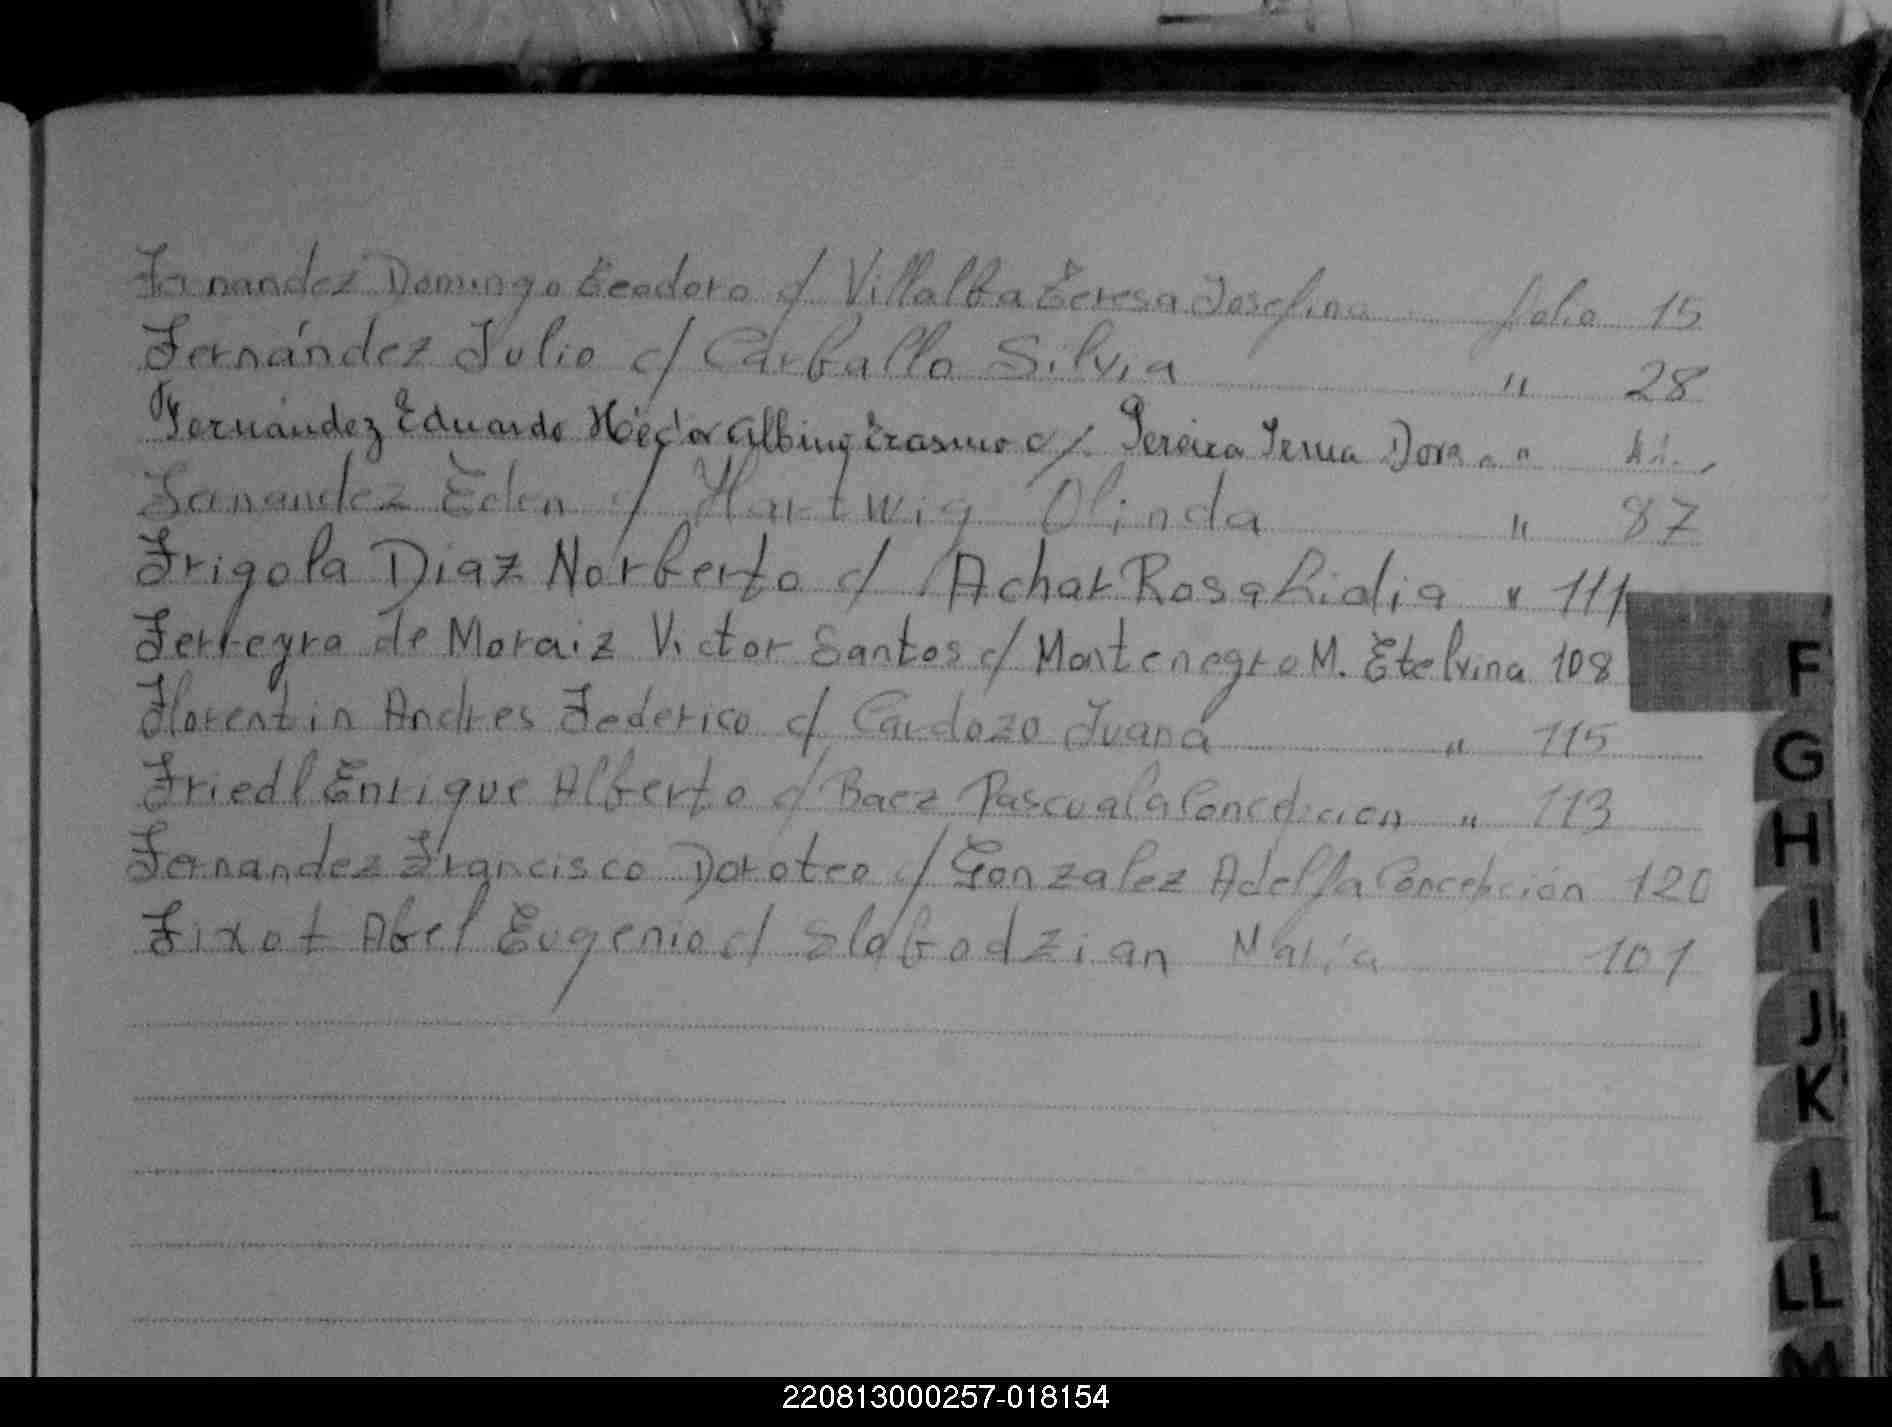 Fernandez Domingo Teodoro c/ Villalba Teresa Josefina folio 15
Fernández Julio c/ Carballo Silvia " 28
Fernández Eduardo Héctor Albino Erasmo c/. Pereira Irma Dora " "
Fernandez Eden c/ Hartwig Olinda " 87
Frigola Diaz Norberto c/ Achar Rosa Lidia " 111
Ferreyra de Moraiz Victor Santos c/ Montenegro M. Etelvina 108
Florentin Andres Federico c/ Cardozo Juana " 115
Friedl Enrique Alberto c/ Baez Pascuala Concepcion " 113
Fernandez Francisco Doroteo c/ Gonzalez Adelfa Concepción 120
Fixot Abel Eugenio c/ Slobodzian María 101
F
G
H
I
J
K
L
LL
M
220813000257-018154